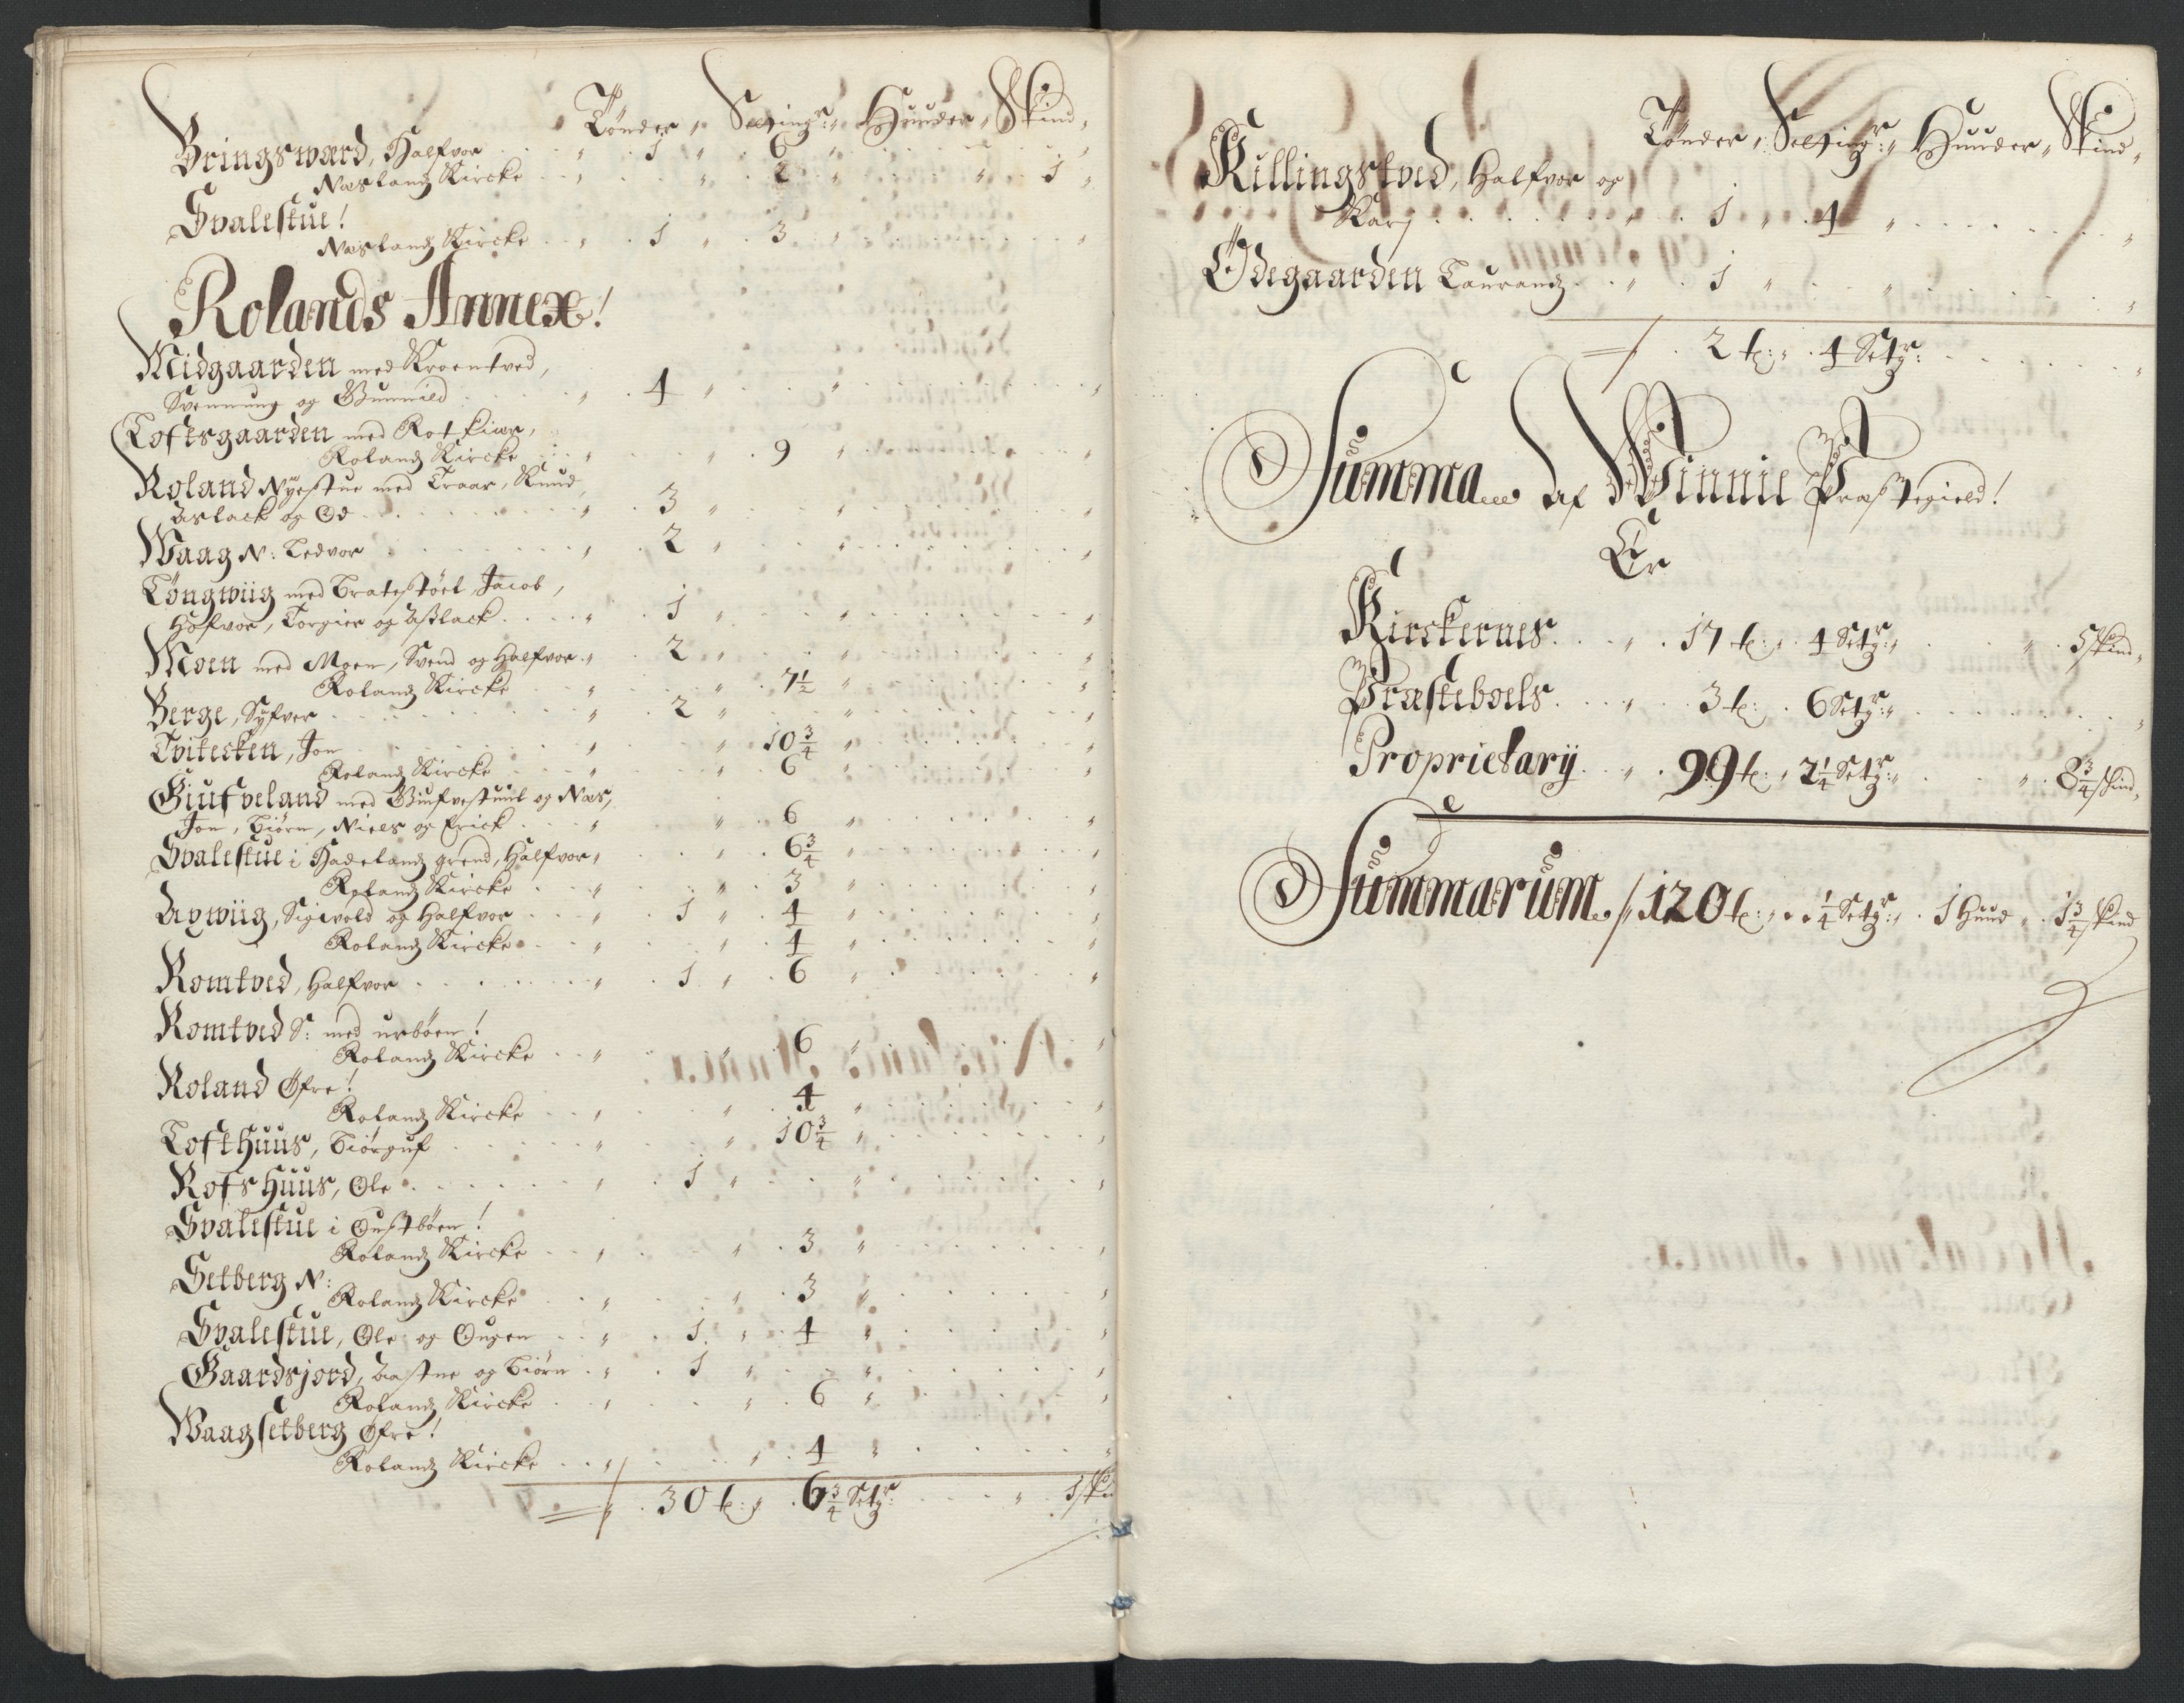 Tønder, Setting:r, Huuder, Skind,
Bringsværd, Halfvor . . . 1 . 6
Næsland Kircke . . . 2 . . 1
Svalestue!
Næsland Kircke . . 1 . 3
Rolands Annex!
Midgaarden med Kroentved,
Svennung og Gunnild . . . 4
Toftsgaarden med Rotkiær,
Roland Kircke . . . 9
Roland Nÿestue med Traar, Knud,
Aslack og Od . . . 3
Waag N: Ledvor . . . 2
Tøngwiig med Bratestøel, Jacob,
Hofvor, Torgier og Aslack . . . 1
Moen med Moen, Svend og Halfvor . 2
Roland Kircke . . . 7½
Berge, Syfver . . . 2
Tviteken, Jon . . . 10¾
Roland Kircke . . . 6
Giufveland med Giufvestuul og Næs,
Jon, Biørn, Niels og Erick . . . 6
Svalestue i Hadeland grend, Halfvor . 6¾
Roland Kircke . . . 3
Aywiig, Sigvold og Halfvor . . . 1 . 4
Roland Kircke . . . 4
Romtved, Halfvor . . . 1 . 6
Romtved S: med urbøen!
Roland Kircke . . . 6
Roland Øfre!
Roland Kircke . . . 4
Tofthuus, Biørguf . . . 10¾
Rofshuus, Ole . . . 1
Svalestue i Oustbøen!
Roland Kircke . . . 3
Setberg N:
Roland Kircke . . . 3
Svalestue, Ole og Ougen . . 1 . 4
Gaardsjord, Aastne og Biørn . . 1
Roland Kircke . . . 6
Waagsetberg Øfre!
Roland Kircke . . . 4
30 t: 6¾ Setg:r . . 1 ski
Tønder, Setting:r, Huuder, Skind,
Killingstved, Halfvor og
Kari . . . 1 . 4
Ødegaarden Tourand . . 1
2 t: 4 Setg:r
Summa af Winnie Præstegield!
Er
Kirckernes . . 17 t: 4 Setg:r . . 5 skind,
Præsteboels . . 3 t: 6 Setg:r
Proprietarÿ . . 99 t: 2¼ Setg:r . . 8¾ skind,
Summarum / 120 t: ¼ Setg:r . 1 Huud . 1¾ skind